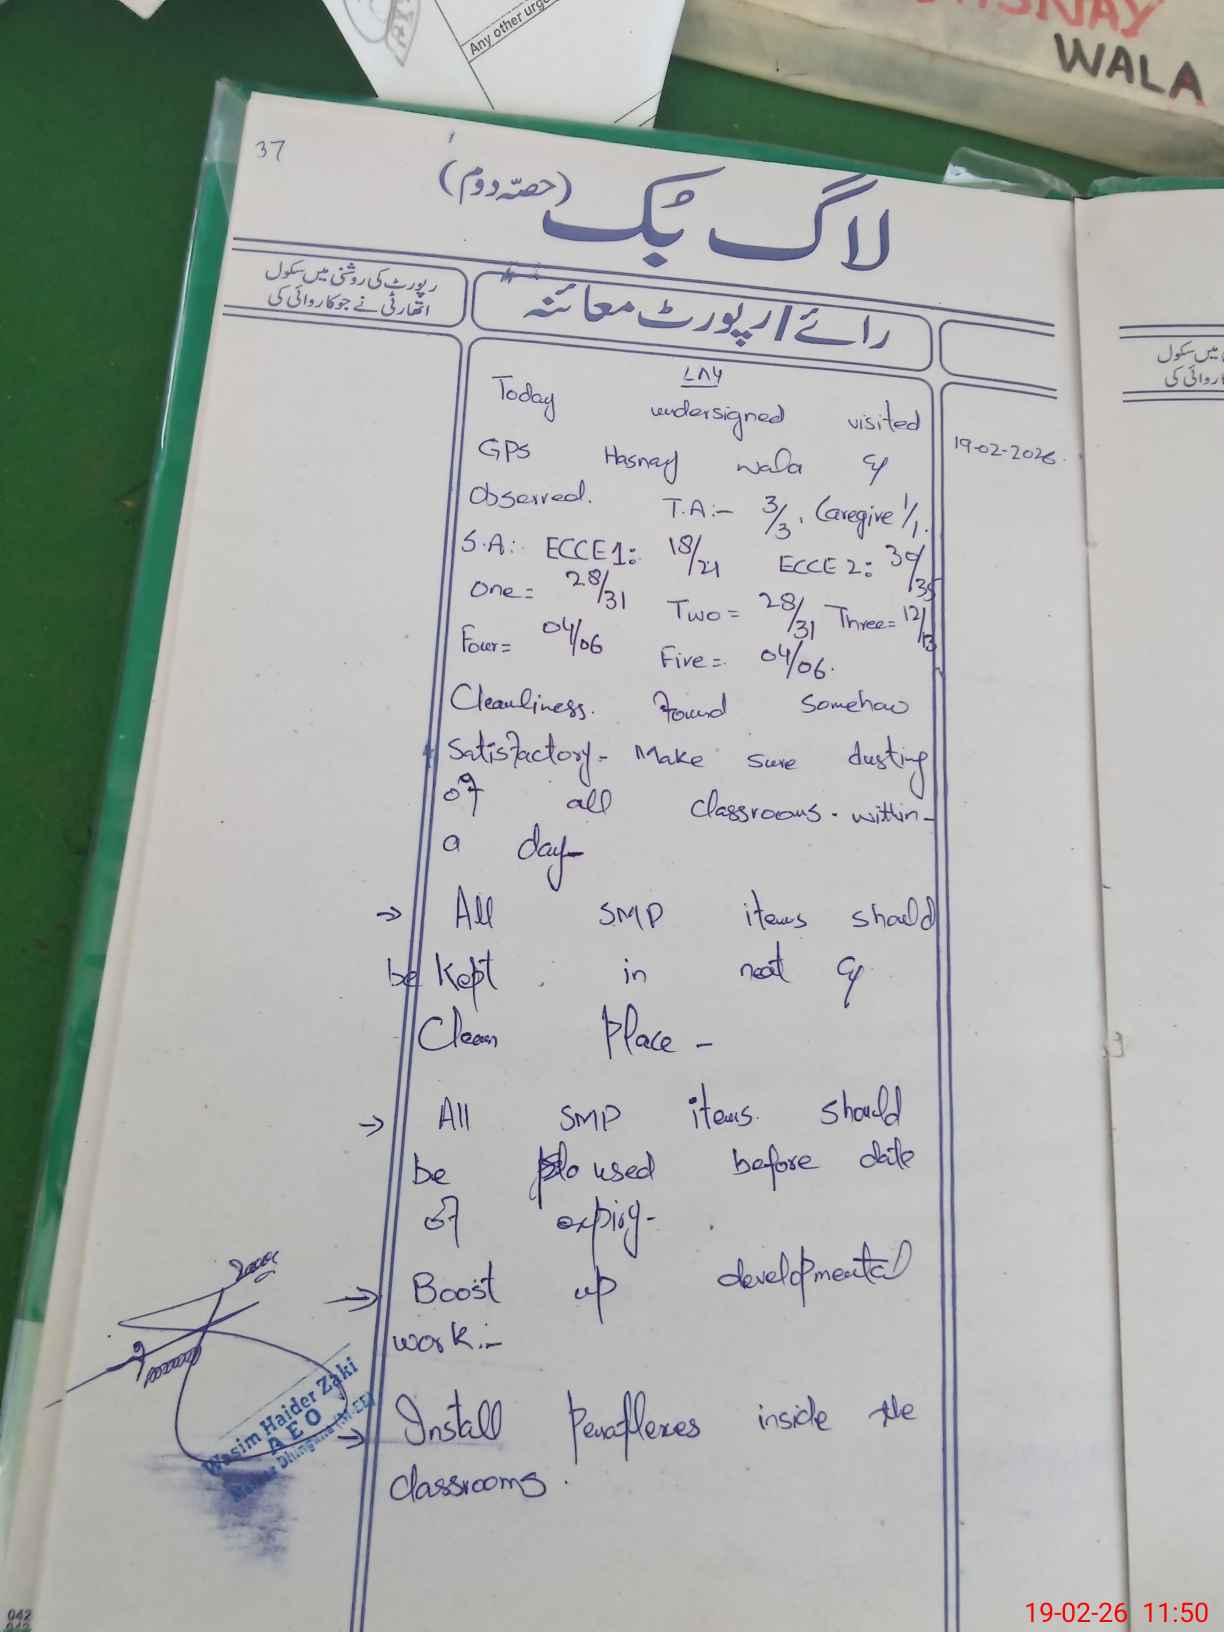 Any other urge
HASNAY
WALA
37
لاگ بک (حصّہ دوم)
رپورٹ کی روشنی میں سکول
اتھارٹی نے جو کاروائی کی
رائے / رپورٹ معائنہ
میں سکول
کاروائی کی
۷۸۶
Today undersigned visited
19-02-2026.
GPS Hasnay wala &
Observed. T.A:- 3/3, Caregive 1/1.
S.A:- ECCE 1: 18/21 ECCE 2: 30/35
One = 28/31 Two = 28/31 Three = 12/13
Four = 04/06 Five = 04/06.
Cleanliness. Found Somehow
Satisfactory - Make sure dusting
of all classrooms. within
a day-
→ All SMP items should
be Kept in neat &
Clean Place -
→ All SMP items should
be used before date
of expiry-
→ Boost up developmental
work:-
→ Install Penaflexes inside the
classrooms.
Wasim Haider Zaki
A E O
Dhingana (M-EE)
042
19-02-26 11:50